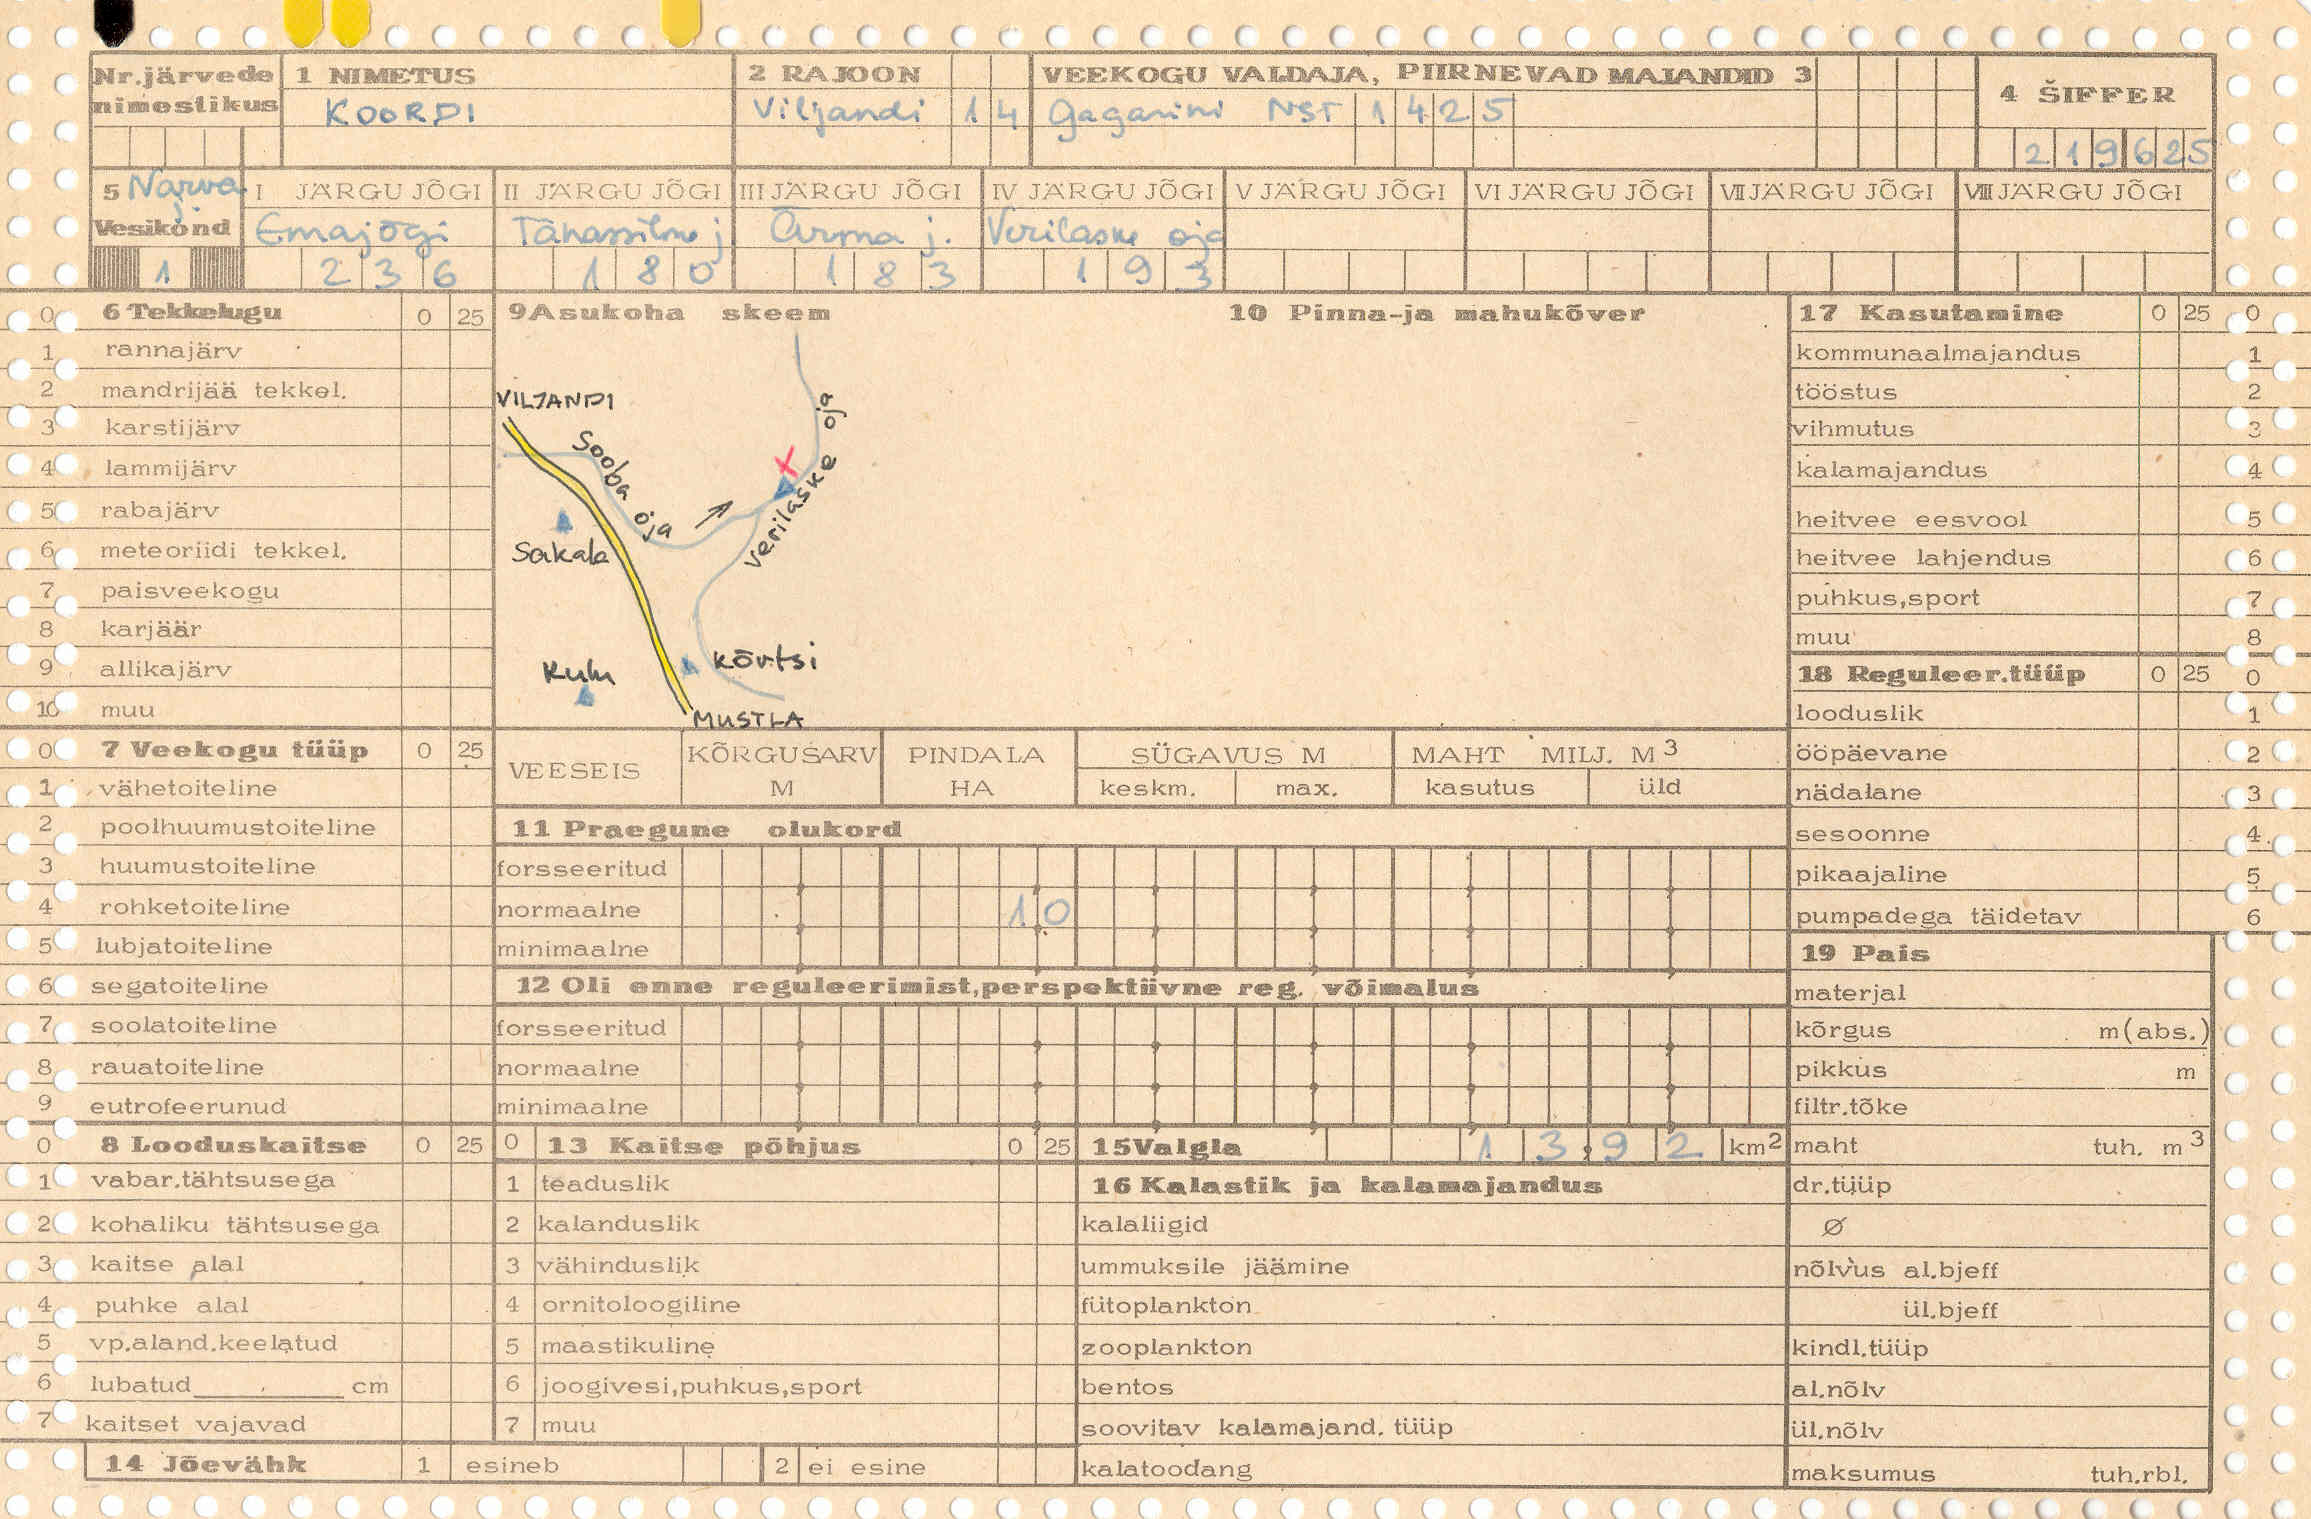 Nr.järvede nimestikus
1 NIMETUS
KOORDI
2 RAJOON
Viljandi 14
VEEKOGU VALDAJA, PIIRNEVAD MAJANDID 3
Gagarini NST 1425
4 ŠIFFER
219625
5 Narva j.
Vesikond
1
I JÄRGU JÕGI
Emajõgi
236
II JÄRGU JÕGI
Tänassilma j
180
III JÄRGU JÕGI
Ärma j.
183
IV JÄRGU JÕGI
Verilaske oja
193
V JÄRGU JÕGI
VI JÄRGU JÕGI
VII JÄRGU JÕGI
VIII JÄRGU JÕGI
0 6 Tekkelugu 0 25
1 rannajärv
2 mandrijää tekkel.
3 karstijärv
4 lammijärv
5 rabajärv
6 meteoriidi tekkel.
7 paisveekogu
8 karjäär
9 allikajärv
10 muu
0 7 Veekogu tüüp 0 25
1 vähetoiteline
2 poolhuumustoiteline
3 huumustoiteline
4 rohketoiteline
5 lubjatoiteline
6 segatoiteline
7 soolatoiteline
8 rauatoiteline
9 eutrofeerunud
0 8 Looduskaitse 0 25
1 vabar.tähtsusega
2 kohaliku tähtsusega
3 kaitse alal
4 puhke alal
5 vp.aland.keelatud
6 lubatud cm
7 kaitset vajavad
9 Asukoha skeem
VILJANDI
Sooba oja
Verilaske oja
Sakala
Kulu
Kõrtsi
MUSTLA
10 Pinna-ja mahukõver
VEESEIS
KÕRGUSARV M
PINDALA HA
SÜGAVUS M
keskm. max.
MAHT MILJ. M3
kasutus üld
11 Praegune olukord
forsseeritud
normaalne 1.0
minimaalne
12 Oli enne reguleerimist,perspektiivne reg. võimalus
forsseeritud
normaalne
minimaalne
0 13 Kaitse põhjus 0 25
1 teaduslik
2 kalanduslik
3 vähinduslik
4 ornitoloogiline
5 maastikuline
6 joogivesi,puhkus,sport
7 muu
14 Jõevähk 1 esineb 2 ei esine
15 Valgla 13,92 km2
16 Kalastik ja kalamajandus
kalaliigid
ummuksile jäämine
fütoplankton
zooplankton
bentos
soovitav kalamajand. tüüp
kalatoodang
17 Kasutamine 0 25 0
kommunaalmajandus 1
tööstus 2
vihmutus 3
kalamajandus 4
heitvee eesvool 5
heitvee lahjendus 6
puhkus,sport 7
muu 8
18 Reguleer.tüüp 0 25 0
looduslik 1
ööpäevane 2
nädalane 3
sesoonne 4
pikaajaline 5
pumpadega täidetav 6
19 Pais
materjal
kõrgus m(abs.)
pikkus m
filtr.tõke
maht tuh. m3
dr.tüüp
Ø
nõlvus al.bjeff
ül.bjeff
kindl.tüüp
al.nõlv
ül.nõlv
maksumus tuh.rbl.